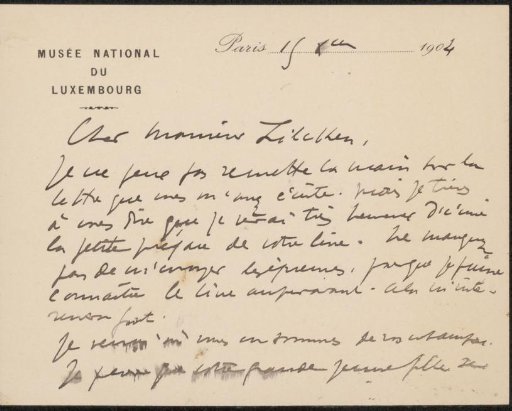 MUSÉE NATIONAL
DU
LUXEMBOURG
Paris 15 Xbre 1904
Cher Monsieur Zilcken,
Je ne peux pas remettre la main sur la
lettre que vous m'avez écrite. Mais je tiens
à vous dire que je serai très heureux d'écrire
la petite préface de votre livre. Ne manquez
pas de m'envoyer les épreuves, pour que je puisse
connaître le livre auparavant. Cela m'inté-
ressera fort.
Je vous en sommes de vos estampes.
Je que votre grande jeune fille